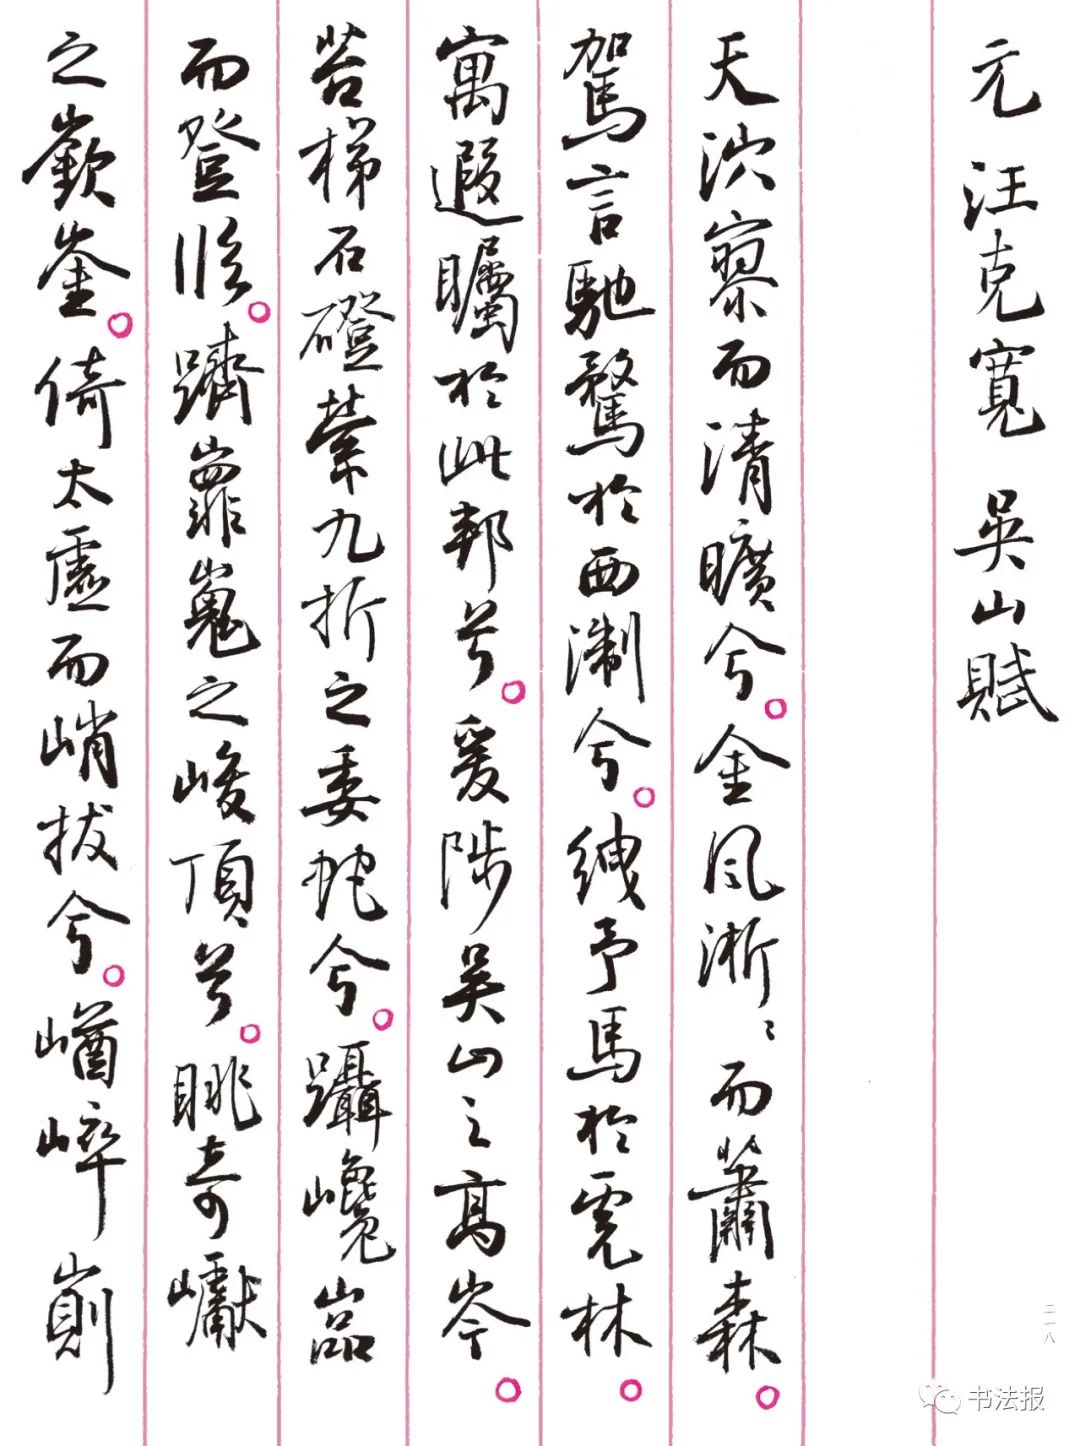 元 汪克寬 吳山賦
天泬寥而清曠兮。金風淅〻而蕭森。
駕言馳騖於西淛兮。絏予馬於雩林。
寓遐矚於此邦兮。爰陟吳山之高岑。
苔梯石磴縈九折之委蛇兮。躡巉嵒
而登臨。躋嶵嵬之峻頂兮。眺奇巘
之嶔崟。倚太虛而峭拔兮。崷崒崱
二一八
书法报